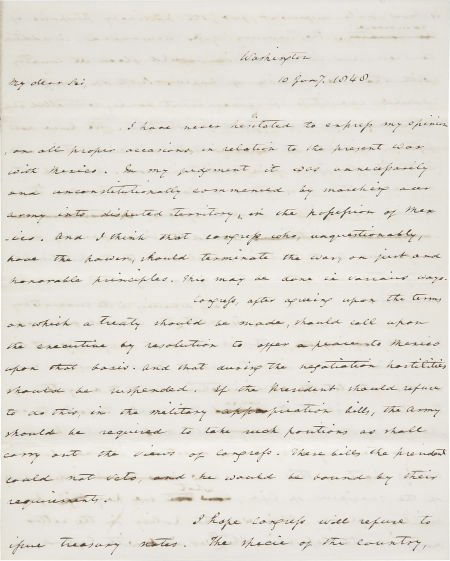 Washington
My dear Sir,
10 Jany. 1848
I have never hesitated to express my opinion
on all proper occasions, in relation to the present war
with Mexico. In my judgment it was unnecessarily
and unconstitutionally commenced by marching our
army into disputed territory, in the possession of Mex
-ico. And I think that congress who, unquestionably,
have the power, should terminate the war, on just and
honorable principles. This may be done in various ways.
Congress, after agreeing upon the terms
on which a treaty should be made, should call upon
the executive by resolution to offer a peace to Mexico
upon that basis. And that during the negotiation hostilities
should be suspended. If the President should refuse
to do this, in the military appropriation bills, the army
should be required to take such positions as shall
carry out the views of congress. These bills the president
could not veto, and he would be bound by their
requirements.
I hope congress will refuse to
issue treasury notes. The specie of the country,